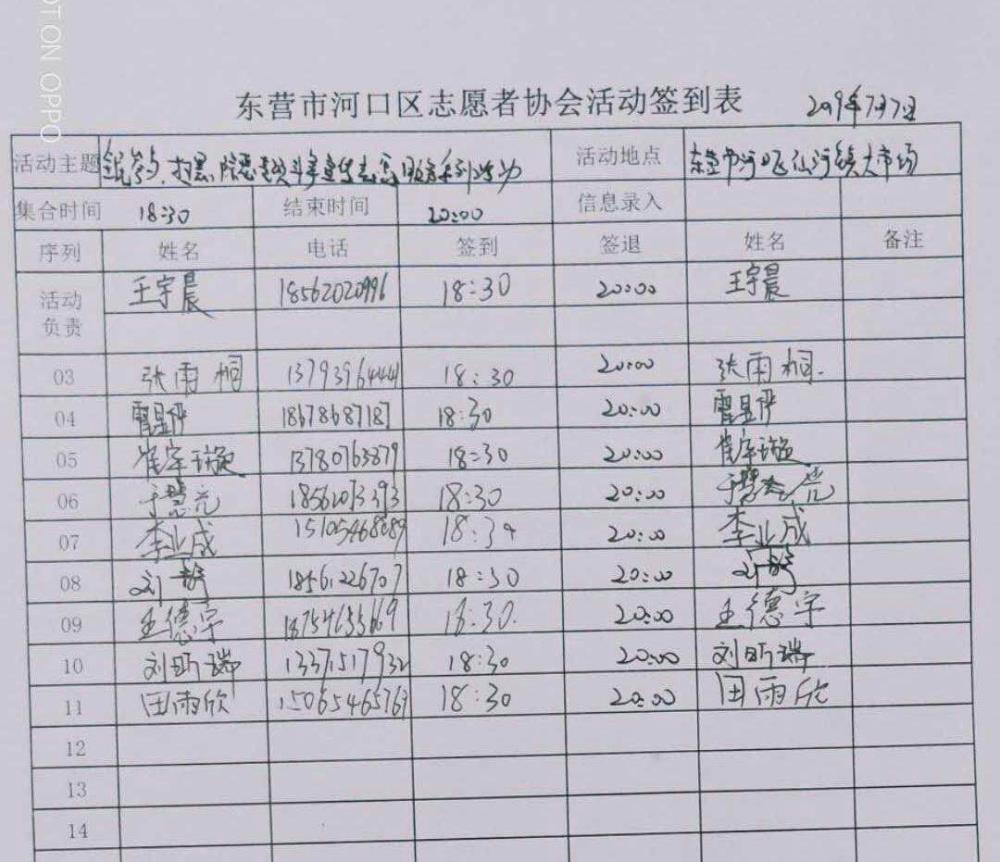 OT ON OPPO
东营市河口区志愿者协会活动签到表 2019年7月7日
活动主题 全民参与,扫黑除恶专项斗争宣传志愿服务系列活动 活动地点 东营市河口区仙河镇大市场
集合时间 18:30 结束时间 20:00 信息录入
序列 姓名 电话 签到 签退 姓名 备注
活动负责 王宇晨 18562020996 18:30 20:00 王宇晨
03 张雨桐 13793964441 18:30 20:00 张雨桐.
04 18678687187 18:30 20:00
05 崔宇璇 13780763879 18:30 20:00 崔宇璇
06 于慧 18561073393 18:30 20:00 于慧
07 李业成 15105468689 18:30 20:00 李业成
08 刘 18561226707 18:30 20:00 刘
09 王德宇 18:30. 20:00 王德宇
10 刘昕瑞 13371517932 18:30 20:00 刘昕瑞
11 田雨欣 15065465763 18:30 20:00 田雨欣
12
13
14